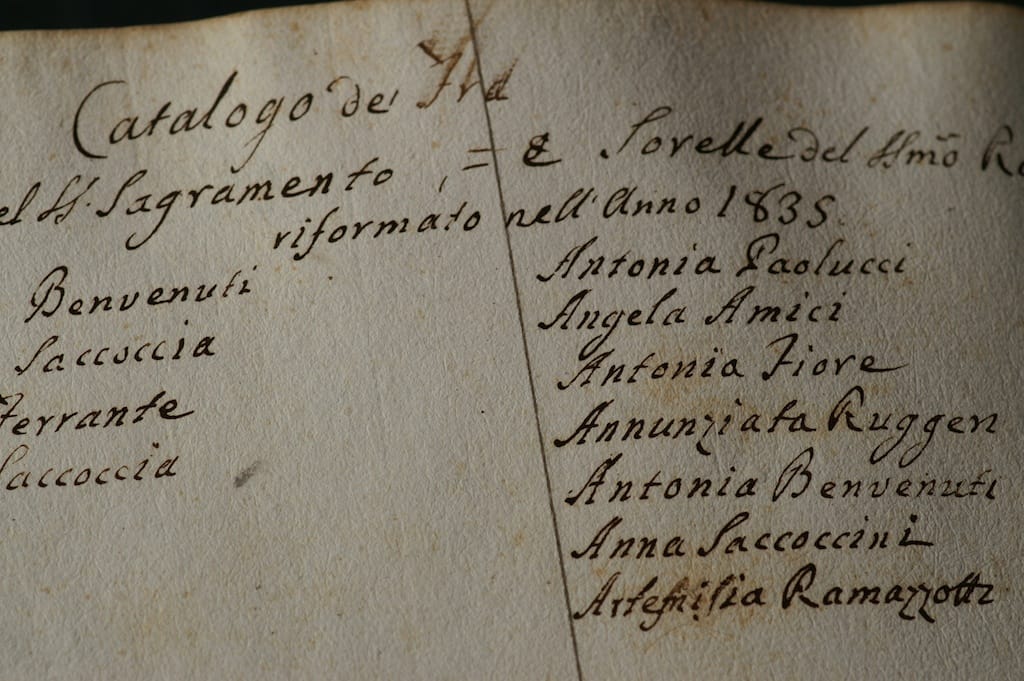 Catalogo de' Fra
el SS. Sagramento, = E Sorelle del SSmo Ro
riformato nell' Anno 1835
Benvenuti
Saccoccia
Ferrante
Saccoccia
Antonia Paolucci
Angela Amici
Antonia Fiore
Annunziata Ruggeri
Antonia Benvenuti
Anna Saccoccini
Artemisia Ramazzotti